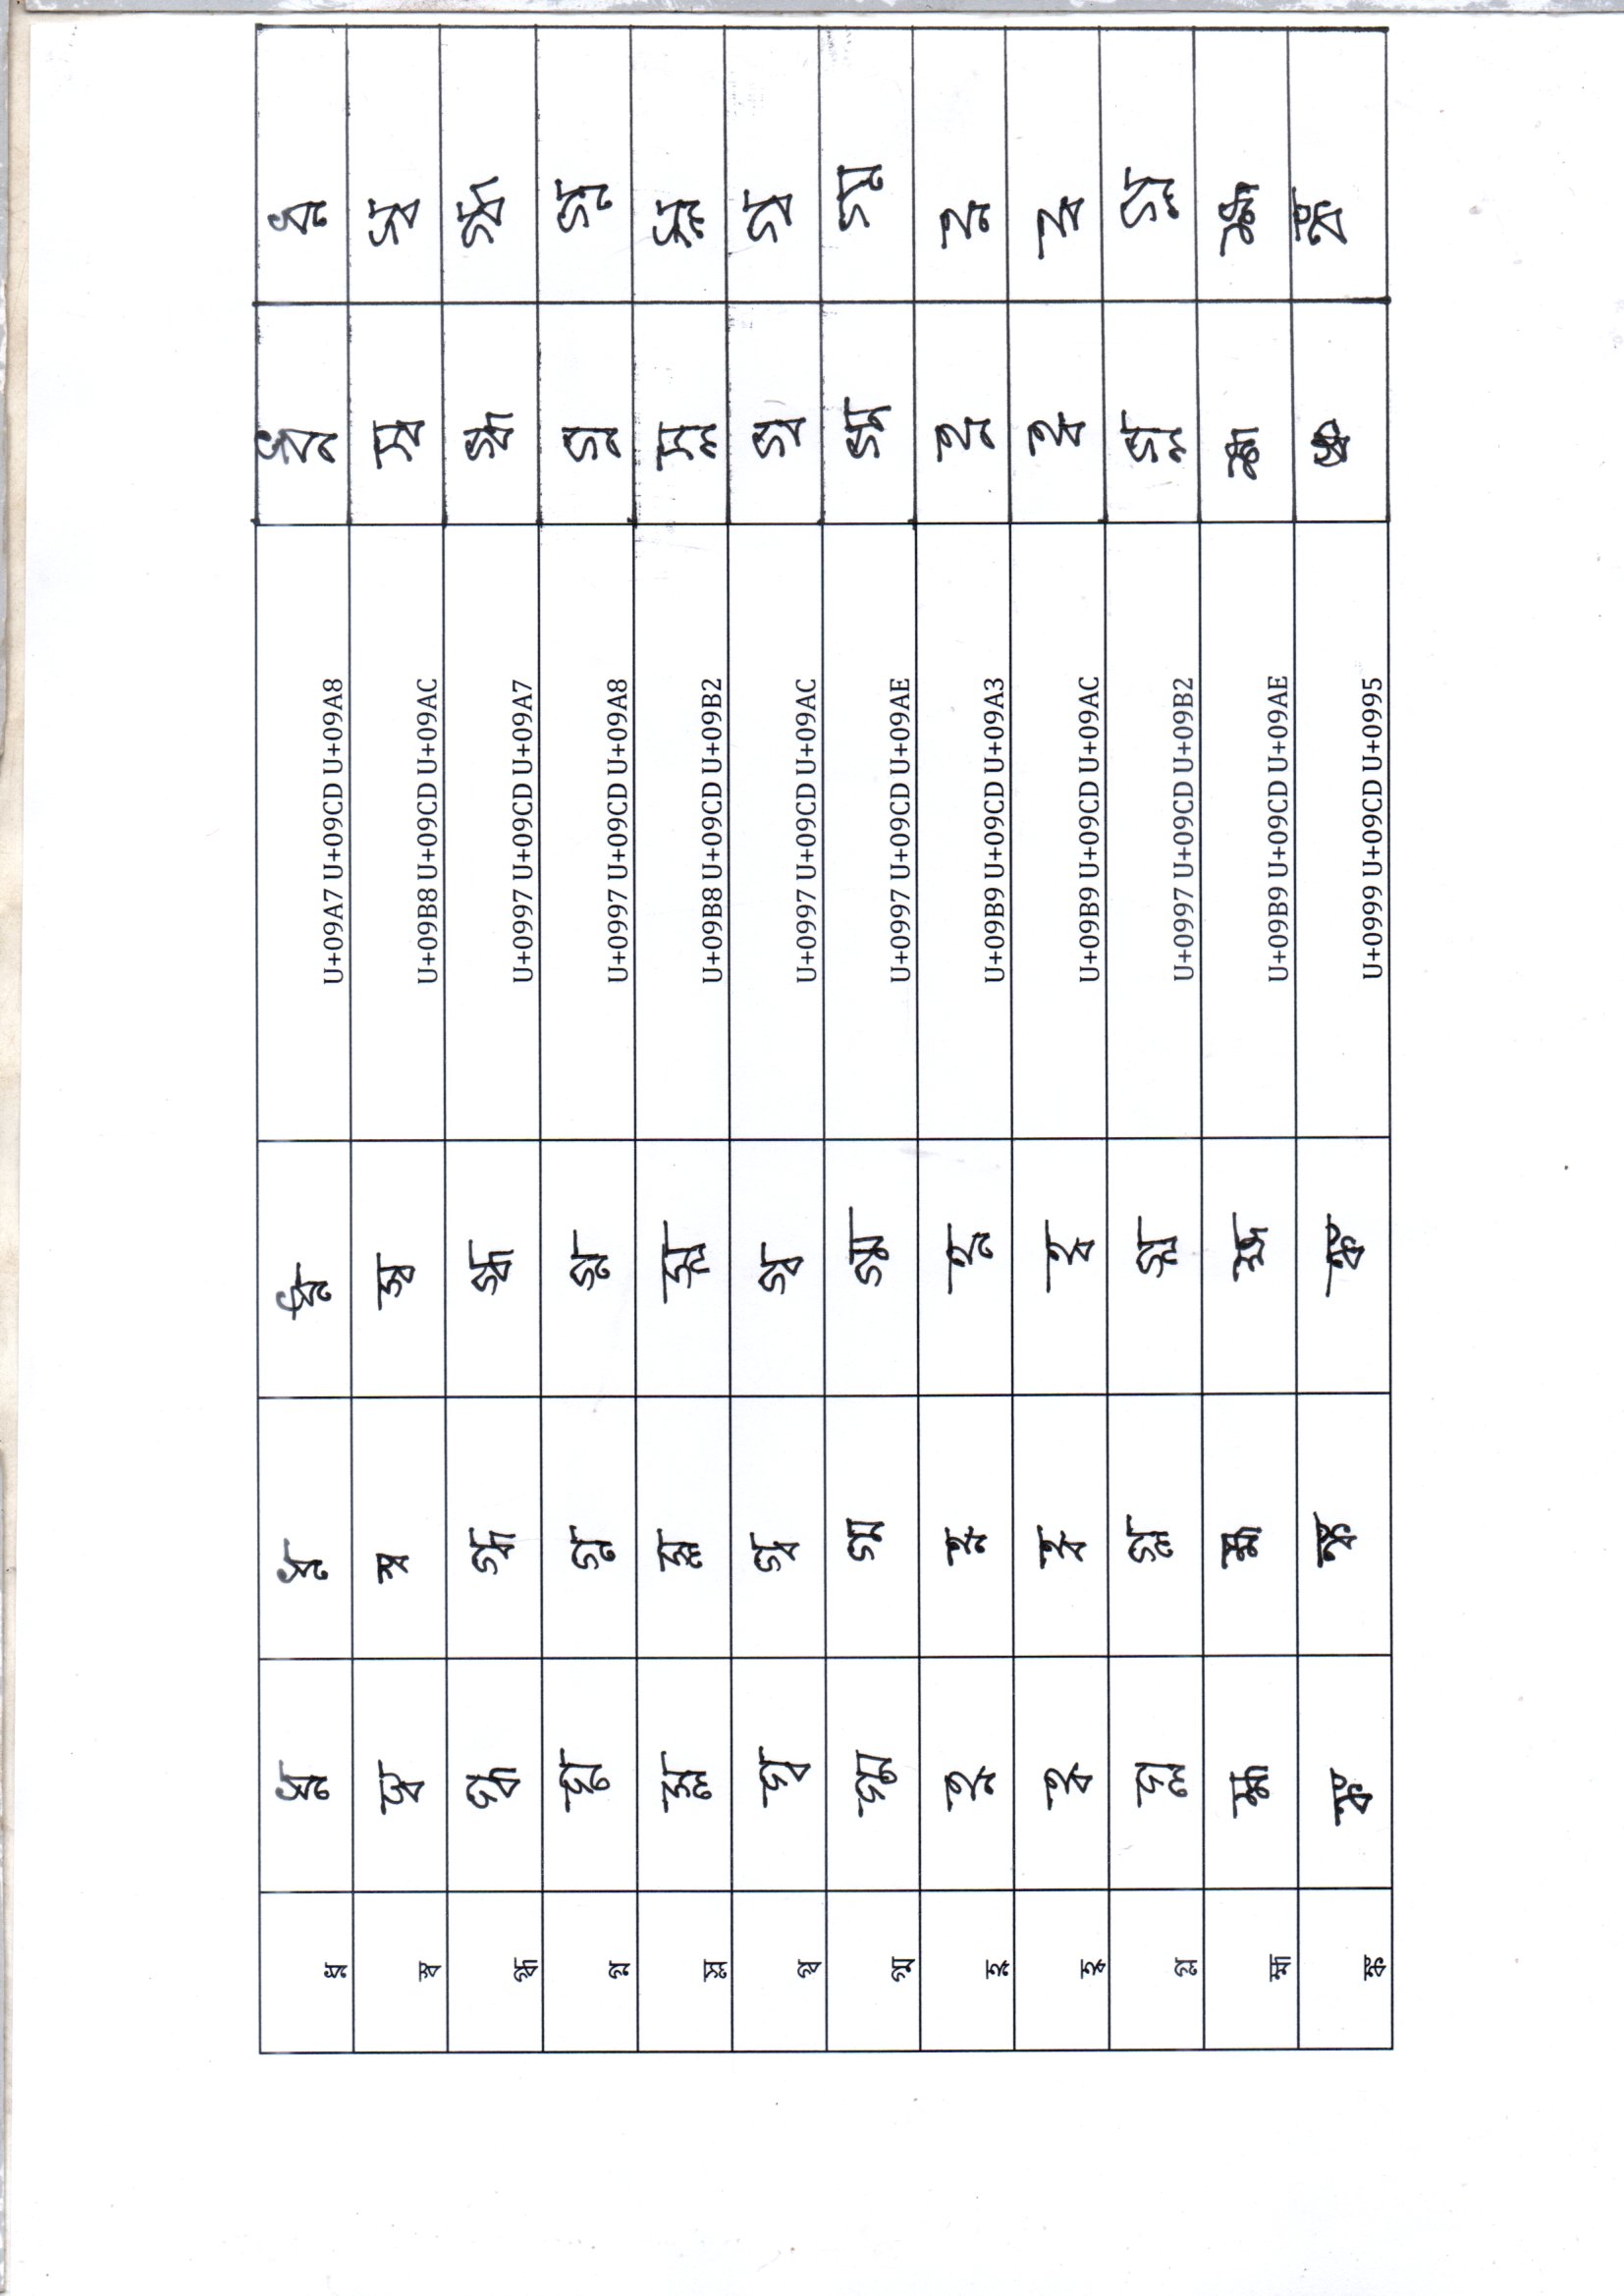 ধ্ন ধ্ন ধ্ন ধ্ন U+09A7 U+09CD U+09A8 ধ্ন ধ্ন
স্ব স্ব স্ব স্ব U+09B8 U+09CD U+09AC স্ব স্ব
গ্ধ গ্ধ গ্ধ গ্ধ U+0997 U+09CD U+09A7 গ্ধ গ্ধ
গ্ন গ্ন গ্ন গ্ন U+0997 U+09CD U+09A8 গ্ন গ্ন
স্ল স্ল স্ল স্ল U+09B8 U+09CD U+09B2 স্ল স্ল
গ্ব গ্ব গ্ব গ্ব U+0997 U+09CD U+09AC গ্ব গ্ব
গ্ম গ্ম গ্ম গ্ম U+0997 U+09CD U+09AE গ্ম গ্ম
হ্ণ হ্ণ হ্ণ হ্ণ U+09B9 U+09CD U+09A3 হ্ণ হ্ণ
হ্ব হ্ব হ্ব হ্ব U+09B9 U+09CD U+09AC হ্ব হ্ব
গ্ল গ্ল গ্ল গ্ল U+0997 U+09CD U+09B2 গ্ল গ্ল
হ্ম হ্ম হ্ম হ্ম U+09B9 U+09CD U+09AE হ্ম হ্ম
ঙ্ক ঙ্ক ঙ্ক ঙ্ক U+0999 U+09CD U+0995 ঙ্ক ঙ্ক